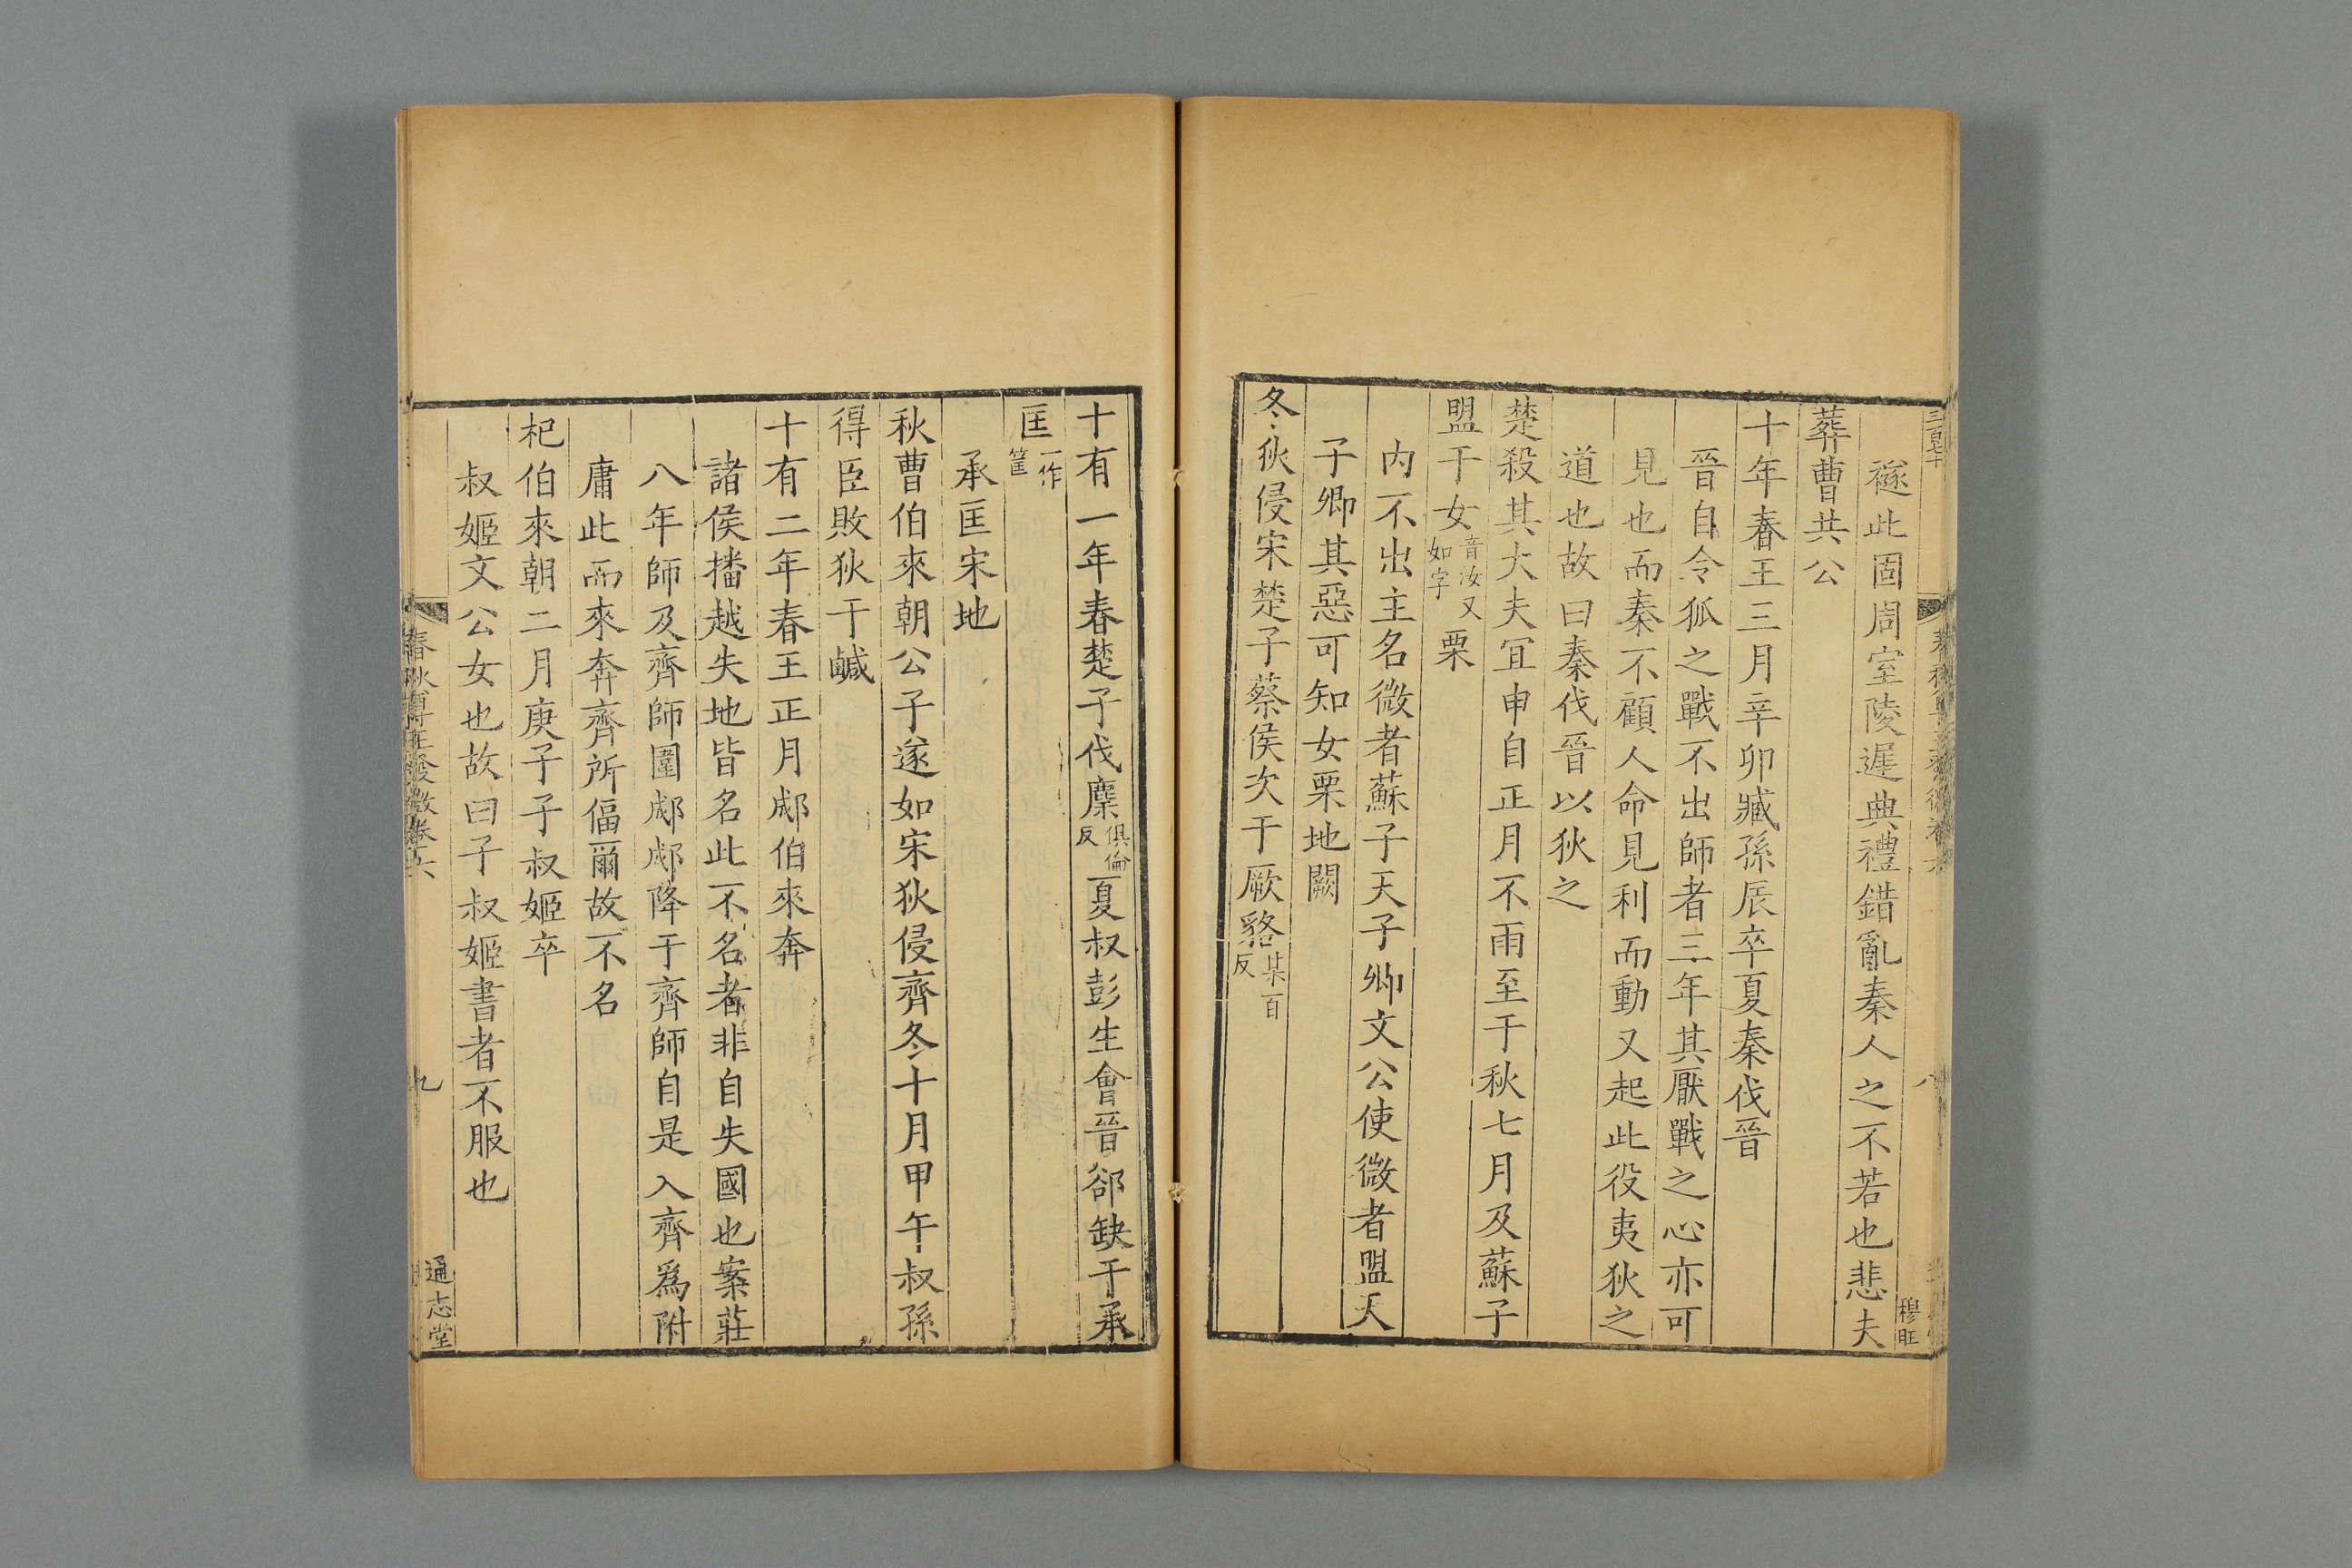 襚此固周室陵遲典禮錯亂秦人之不若也悲夫
葬曹共公
十年春王三月辛卯臧孫辰卒夏秦伐晉
晉自令狐之戰不出師者三年其厭戰之心亦可
見也而秦不顧人命見利而動又起此役夷狄之
道也故曰秦伐晉以狄之
楚殺其大夫宜申自正月不雨至于秋七月及蘇子
盟于女音汝又如字栗
內不出主名微者蘇子天子卿文公使微者盟天
子卿其惡可知女栗地闕
冬狄侵宋楚子蔡侯次于厥貉某百反
八
穆旺
十有一年春楚子伐麇俱倫反夏叔彭生會晉郤缺于承
匡一作筐
承匡宋地
秋曹伯來朝公子遂如宋狄侵齊冬十月甲午叔孫
得臣敗狄于鹹
十有二年春王正月郕伯來奔
諸侯播越失地皆名此不名者非自失國也案莊
八年師及齊師圍郕郕降于齊師自是入齊爲附
庸此而來奔齊所偪爾故不名
杞伯來朝二月庚子子叔姬卒
叔姬文公女也故曰子叔姬書者不服也
春秋尊王發微卷六
九
通志堂